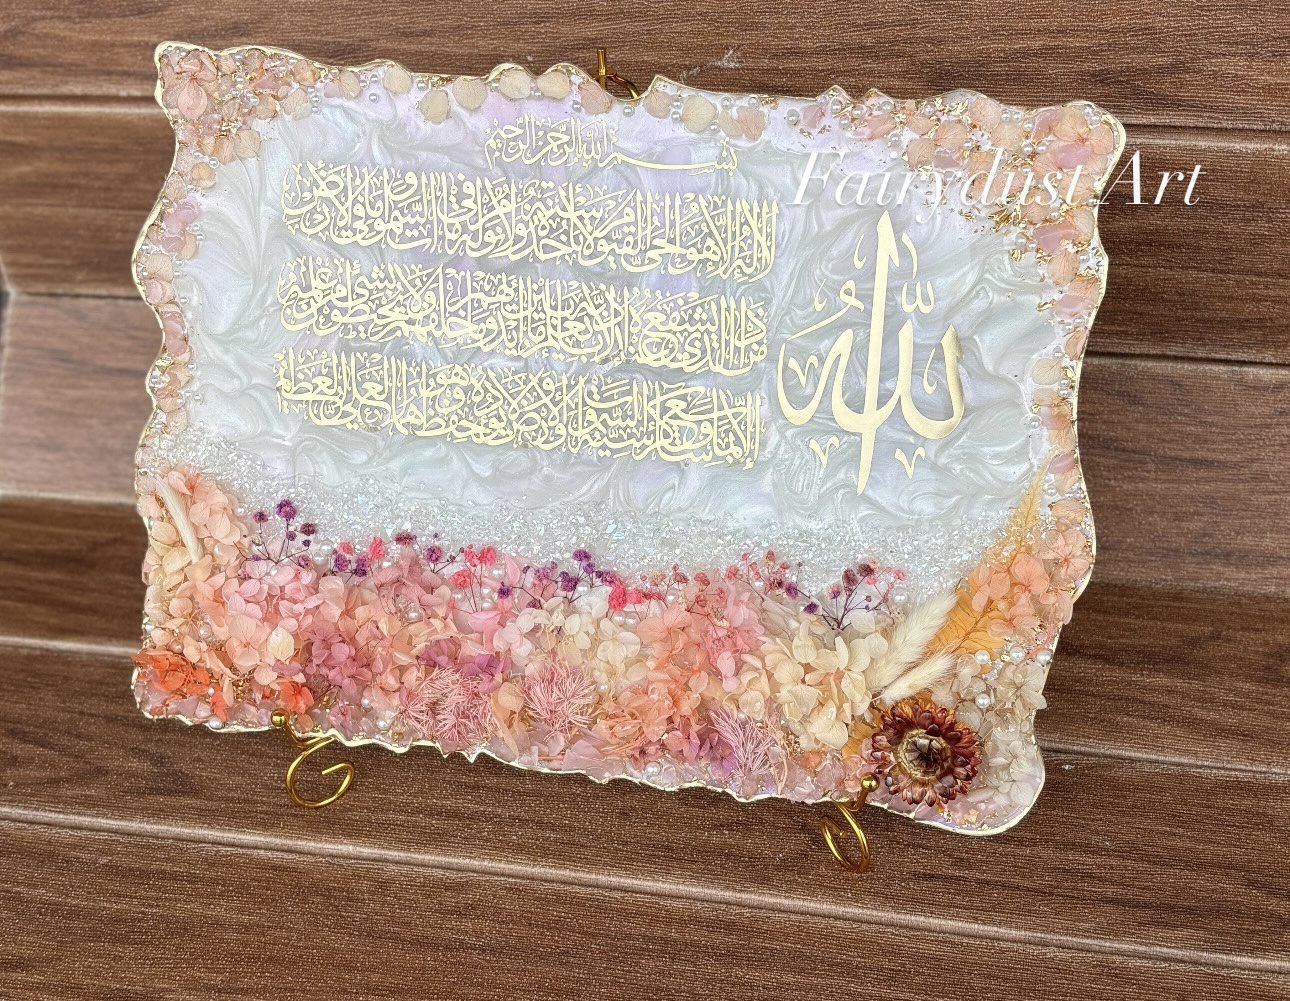 بسم الله الرحمن الرحيم
الله
لا إله إلا هو الحي القيوم لا تأخذه سنة ولا نوم له ما في السموات وما في الأرض
من ذا الذي يشفع عنده إلا بإذنه يعلم ما بين أيديهم وما خلفهم ولا يحيطون بشيء من علمه
إلا بما شاء وسع كرسيه السموات والأرض ولا يؤده حفظهما وهو العلي العظيم
Fairydust Art